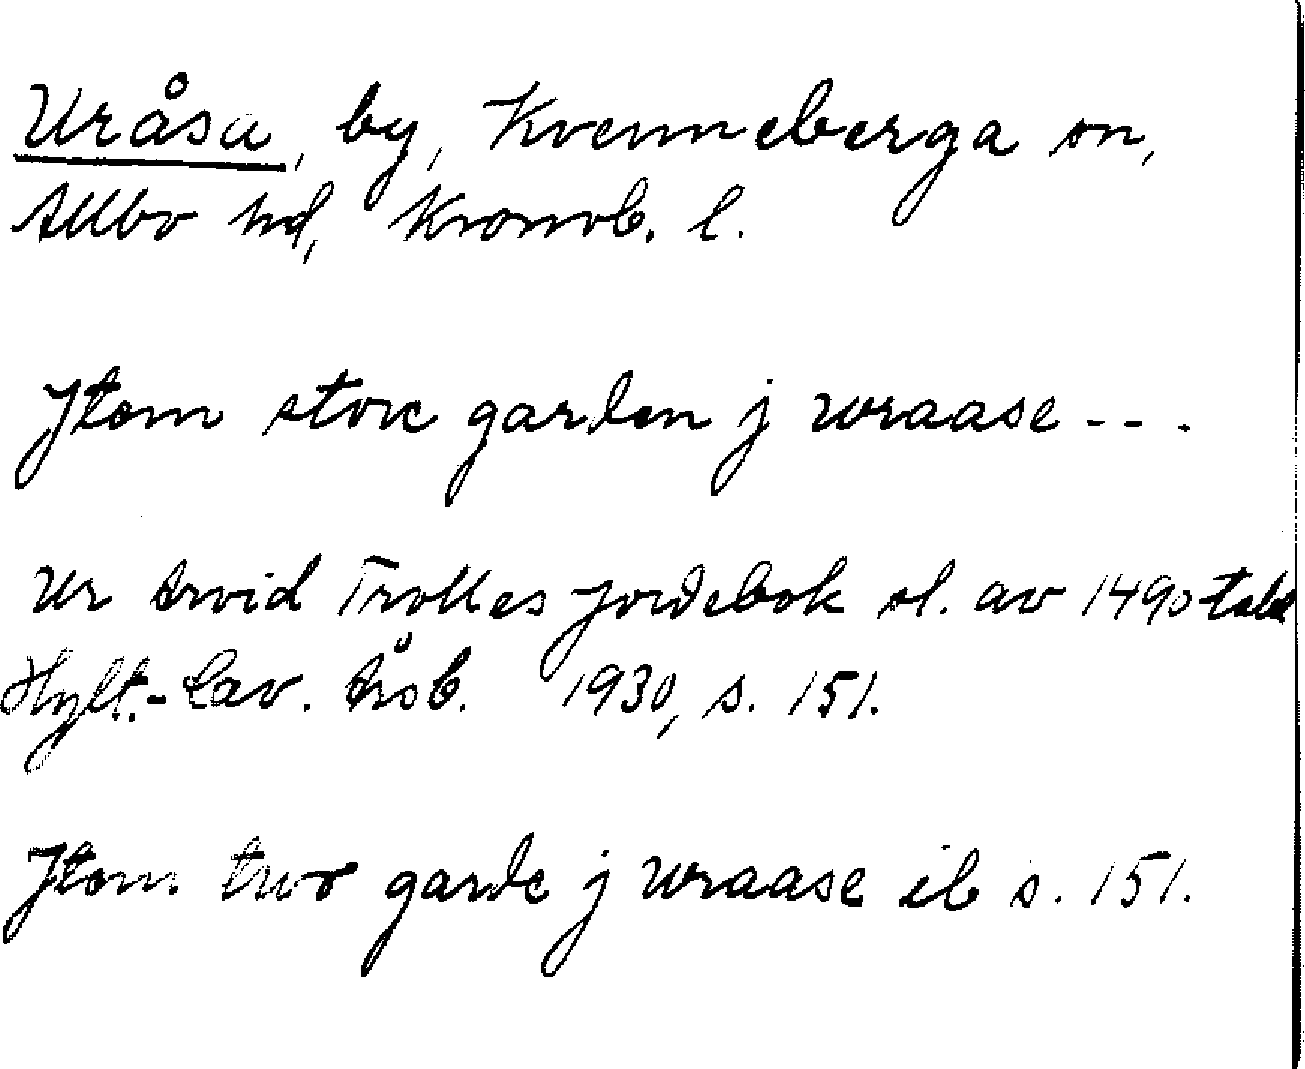 Uråsa, by, Kvenneberga sn,
Allbo hd, Kronob. l.
Jtem store garden j wraase - - .
Ur Arvid Trolles jordebok sl. av 1490-talet
Hylt.-Cav. Årsb. 1930, s. 151.
Jtem two garde j wraase ib s. 151.